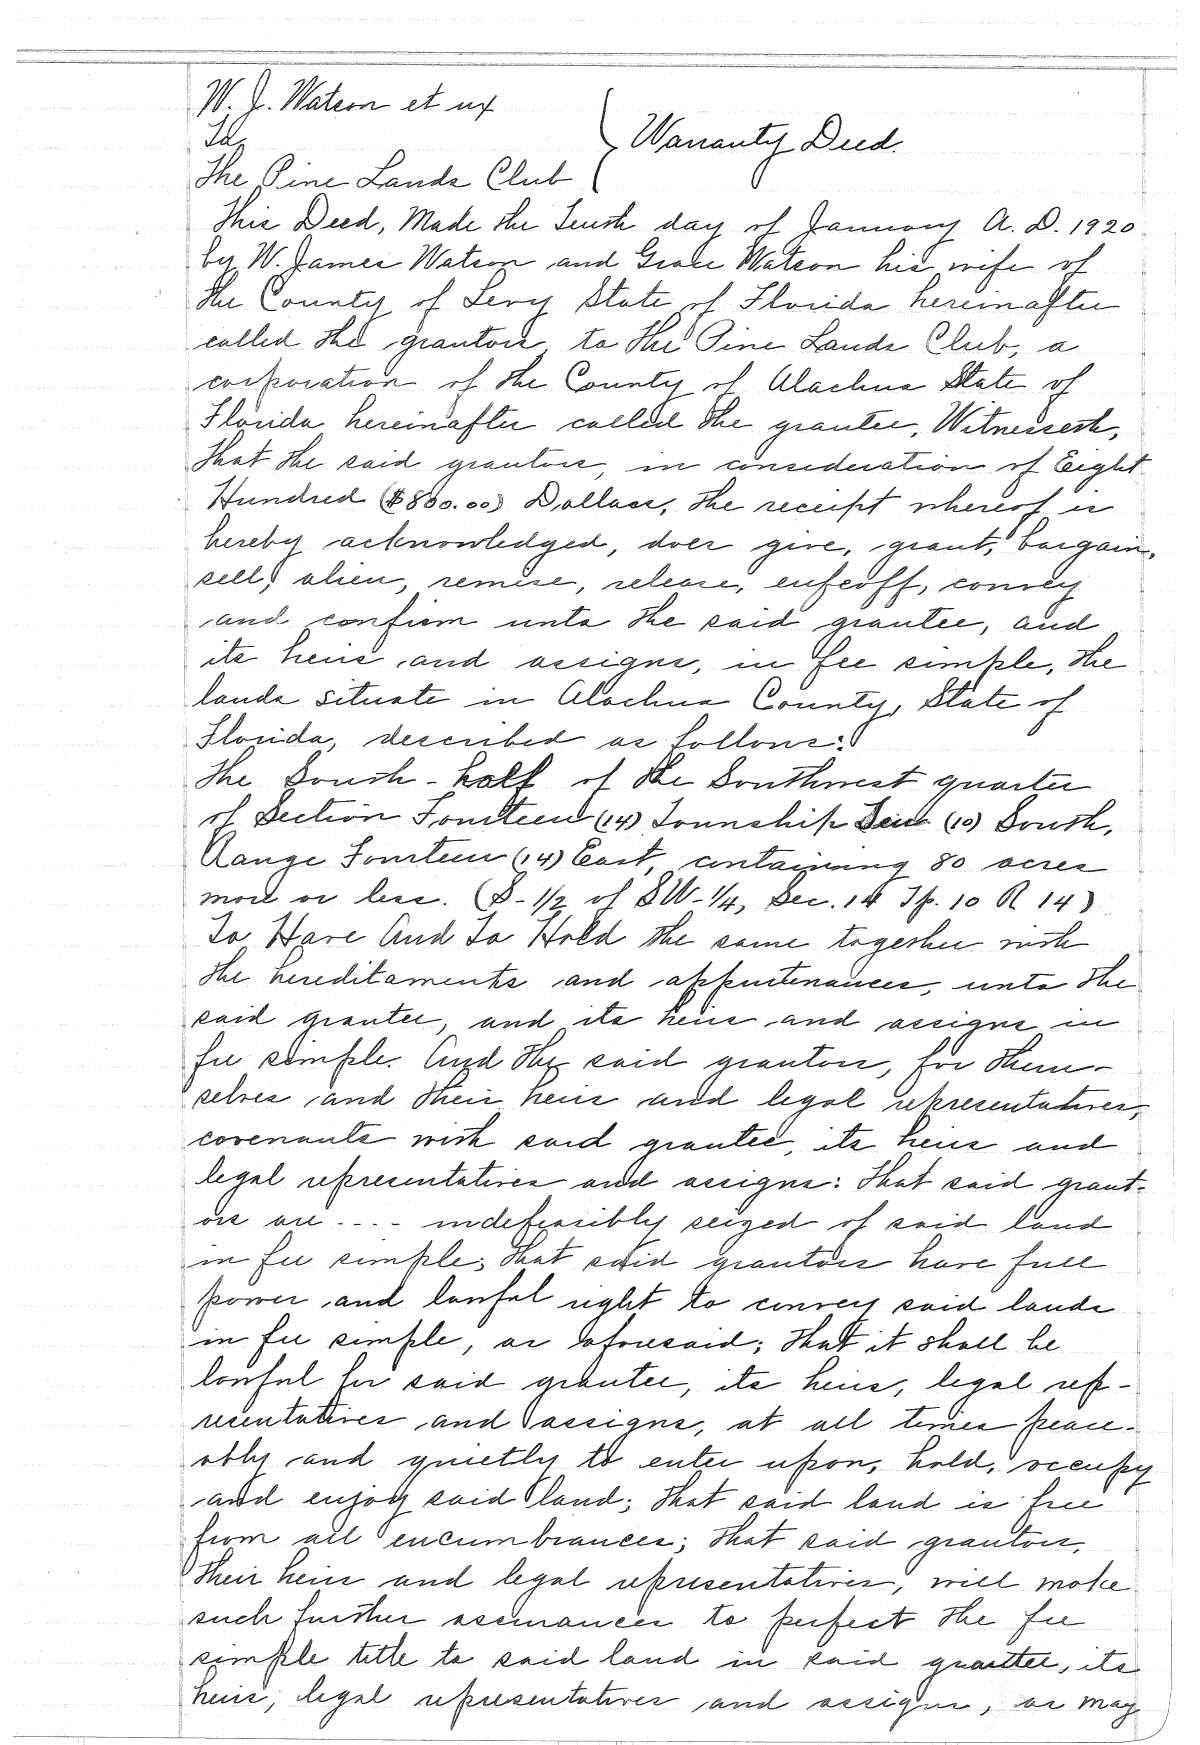 W. J. Watson et ux
To
Warranty Deed.
The Pine Lands Club
This Deed, Made the Tenth day of January A. D. 1920
by W. James Watson and Grace Watson his wife of
the County of Levy State of Florida hereinafter
called the grantors to the Pine Lands Club, a
corporation of the County of Alachua State of
Florida hereinafter called the grantee, Witnesseth,
that the said grantors, in consideration of Eight
Hundred ($800.00) Dollars, the receipt whereof is
hereby acknowledged, does give, grant, bargain,
sell, alien, remise, release, enfeoff, convey
and confirm unto the said grantee, and
its heirs and assigns, in fee simple, the
lands situate in Alachua County, State of
Florida, described as follows:
The South-half of the Southwest quarter
of Section Fourteen (14) Township Ten (10) South,
Range Fourteen (14) East, containing 80 acres
more or less. (S-1/2 of SW-1/4, Sec. 14 Tp. 10 R 14)
To Have And To Hold the same together with
the hereditaments and appurtenances, unto the
said grantee, and its heirs and assigns in
fee simple. And the said grantors, for them-
selves and their heirs and legal representatives,
covenants with said grantee, its heirs and
legal representatives and assigns: That said grant-
ors are - - - - indefeasibly seized of said land
in fee simple; that said grantors have full
power and lawful right to convey said lands
in fee simple, as aforesaid; that it shall be
lawful for said grantee, its heirs, legal rep-
resentatives and assigns, at all times peace-
ably and quietly to enter upon, hold, occupy
and enjoy said land; that said land is free
from all encumbrances; that said grantors,
their heirs and legal representatives, will make
such further assurances to perfect the fee
simple title to said land in said grantee, its
heirs, legal representatives and assigns, as may